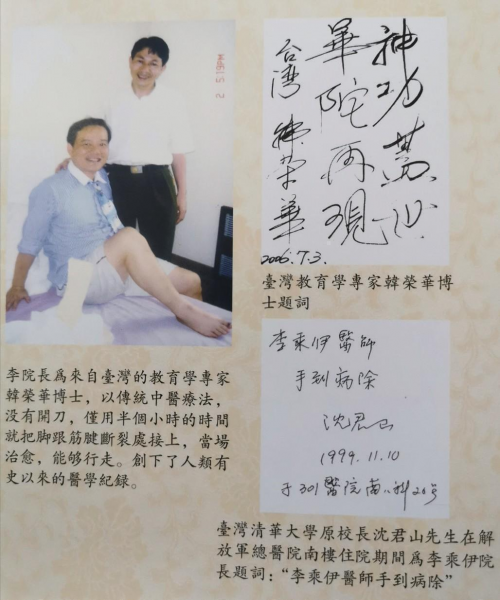 神功蓋世
華陀再現
台湾 韩荣華
2006.7.3.
臺灣教育學專家韓榮華博
士題詞
李院長爲來自臺灣的教育學專家
韓榮華博士，以傳統中醫療法，
没有開刀，僅用半個小時的時間
就把脚跟筋腱斷裂處接上，當場
治愈，能够行走。創下了人類有
史以來的醫學紀録。
李乘伊醫師
手到病除
沈君山
1999.11.10
于301醫院南
臺灣清華大學原校長沈君山先生在解
放軍總醫院南樓住院期間爲李乘伊院
長題詞：“李乘伊醫師手到病除”